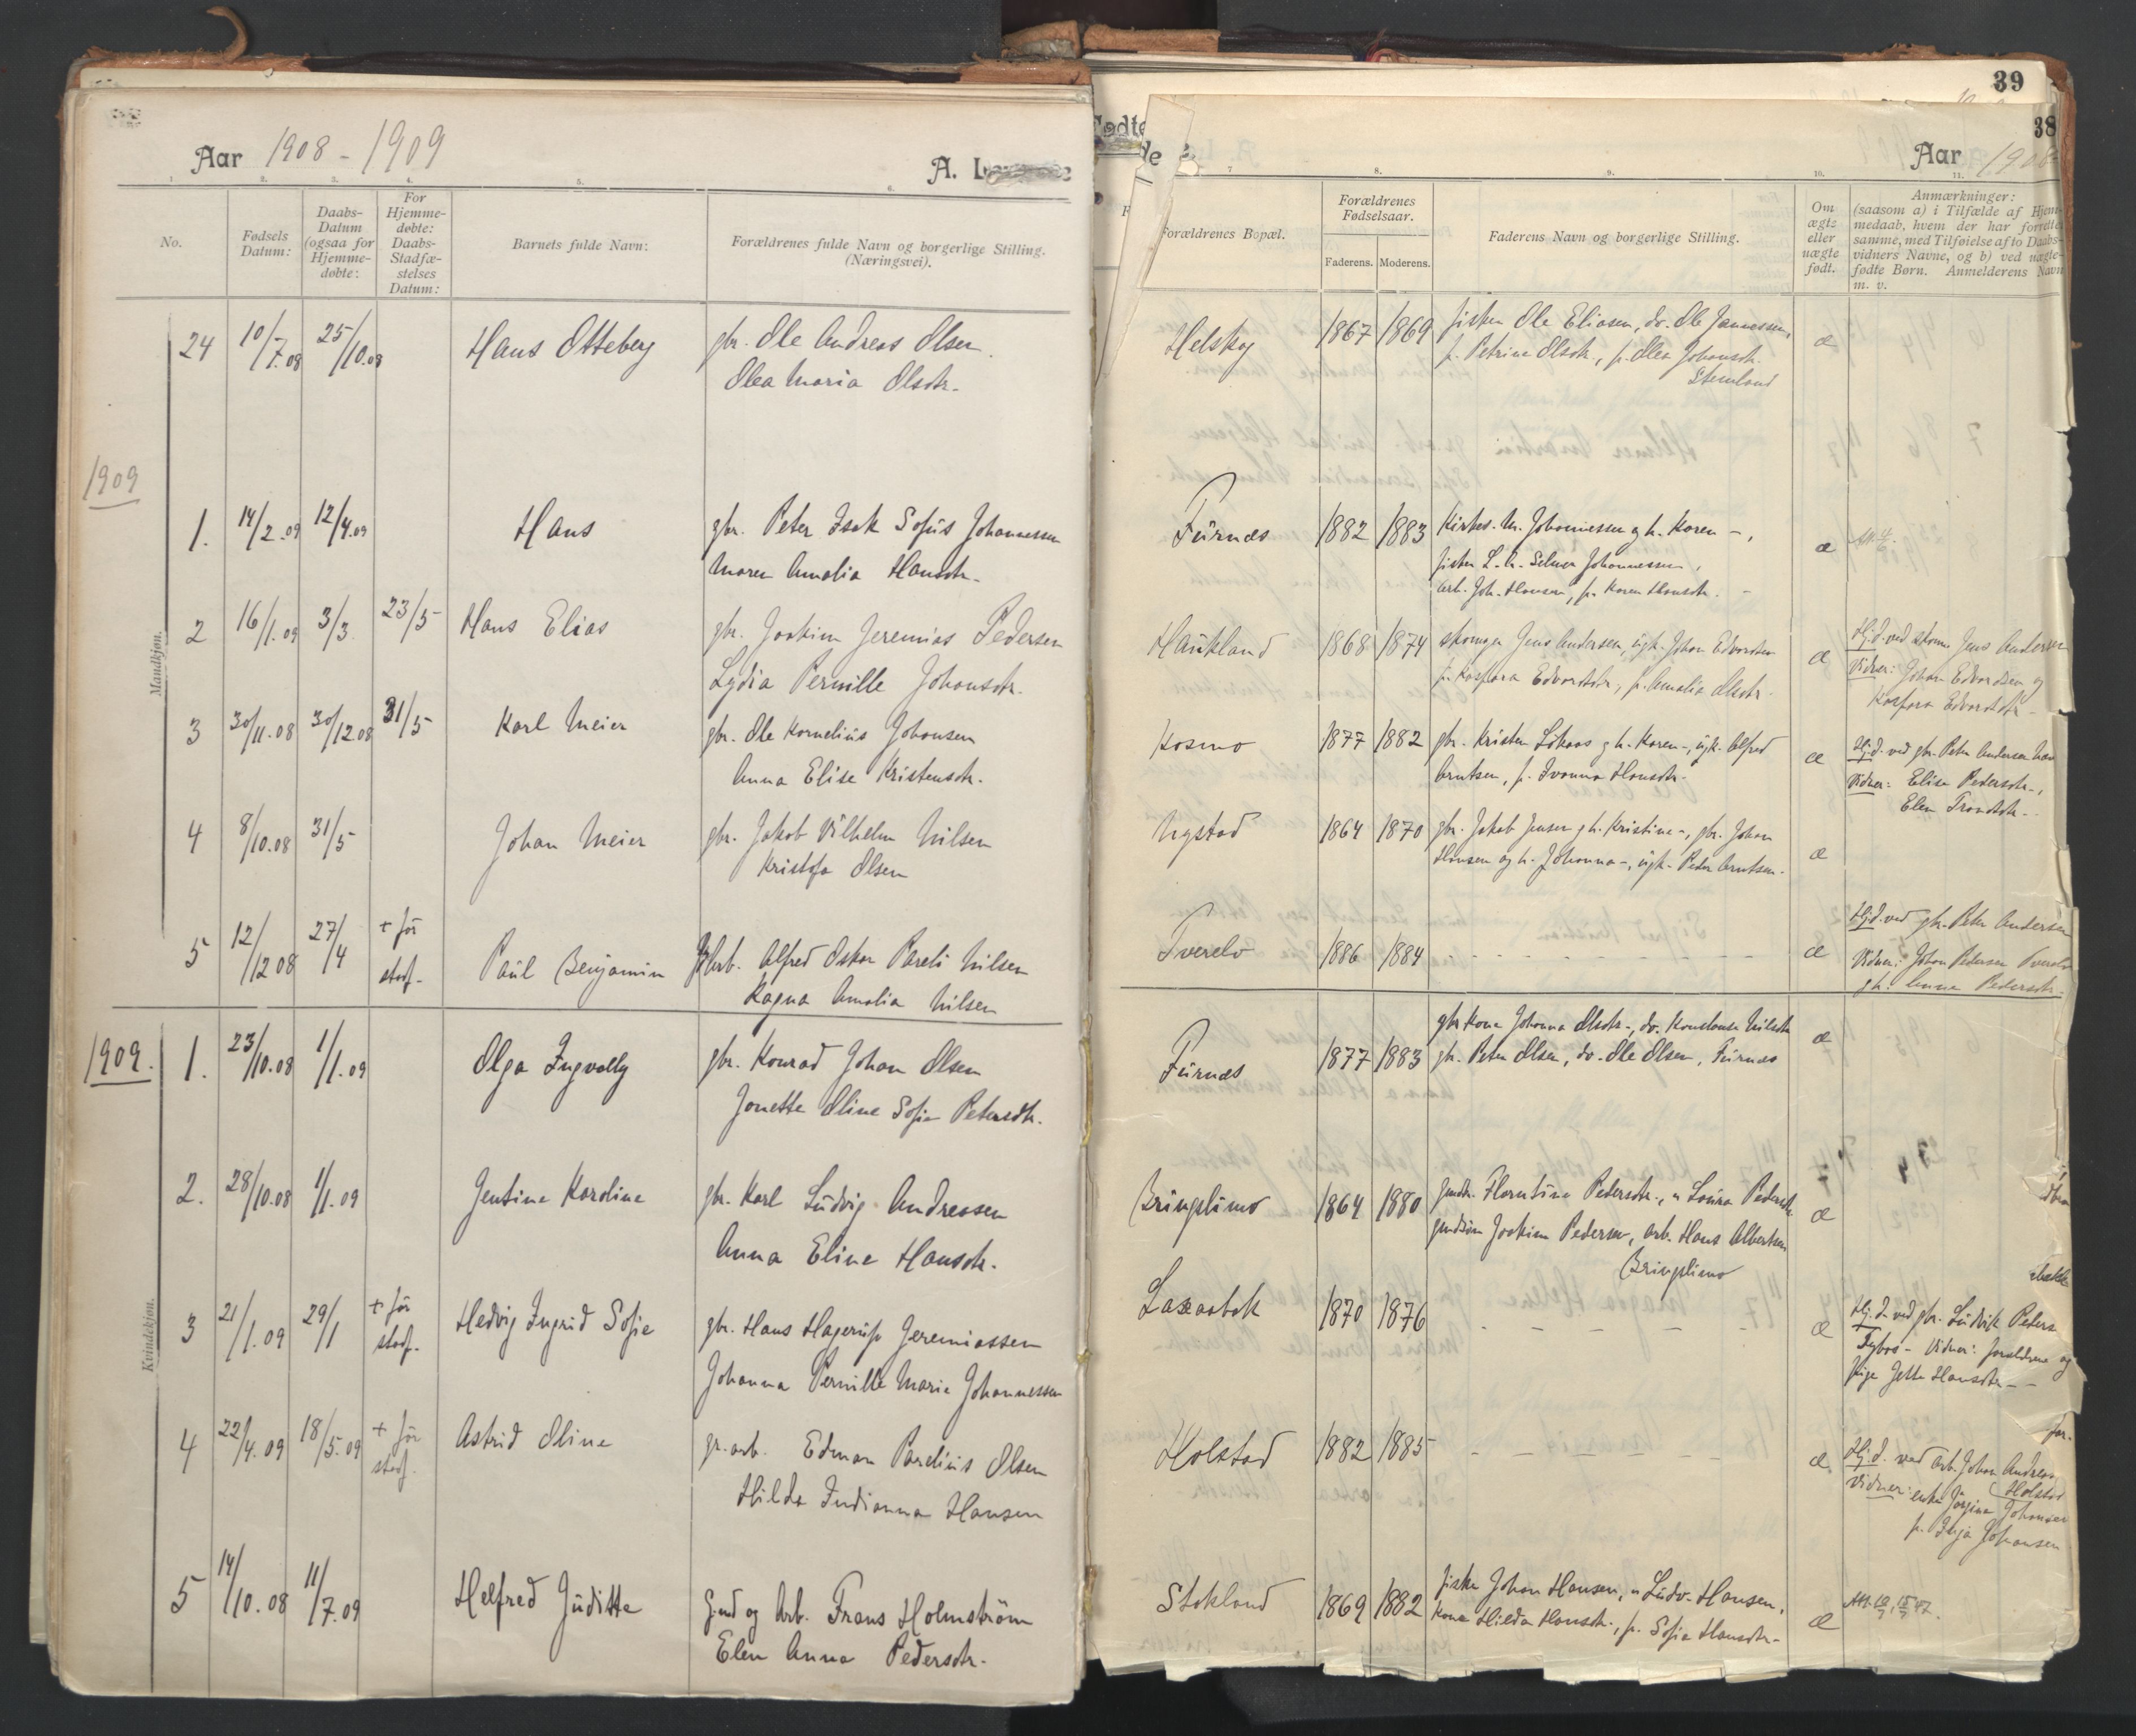 39
38
Aar 1908 - 1909
A.
Aar 1908
1.
2.
3.
4.
5.
6.
7
8.
9.
10.
11.
No.
Fødsels Datum:
Daabs-Datum (ogsaa for Hjemme-døbte:
For Hjemme-døbte: Daabs-Stadfæ-stelses Datum:
Barnets fulde Navn:
Forældrenes fulde Navn og borgerlige Stilling.
(Næringsvei).
Forældrenes Bopæl.
Forældrenes Fødselsaar.
Faderens. Moderens.
Faderens Navn og borgerlige Stilling.
Om ægte eller uægte født.
Anmærkninger:
(saasom a) i Tilfælde af Hjem-
medaab, hvem der har forrettet
samme, med Tilføielse af to Daabs-
vidners Navne, og b) ved uægte-
fødte Børn. Anmelderens Navn
m. v.
Mandkjøn.
24 10/7.08 25/10.08 Hans Otteberg gbr. Ole Andreas Olsen
Olea Maria Olsdtr.
Helskog 1867 1869 fisker Ole Eliasen, do. Ole Jannessen,
p. Petrine Olsdtr., p. Olea Johansdtr.
æ
1909
1. 14/2.09 12/4.09 Hans gbr. Peter Isak Sofus Johannessen
Maren Amalia Hansdtr.
Furnes 1882 1883 Kirkes. M. Johannessen g h. Karen -,
fisker L. A. Selmer Johannessen,
arb. Joh. Hansen, p. Karen Hansdtr. -
æ
2 16/1.09 3/3 23/5 Hans Elias gbr. Joakim Jeremias Pedersen
Lydia Pernille Johansdtr.
Haukland 1868 1874 skomager Jens Andersen, ugk. Johan Edvardsen
p. Kaspara Edvardsdtr., p. Amalia Olsdtr.
æ
Hj.d. ved skom. Jens Andersen
Vidner: Johan Edvardsen og
Kaspara Edvardsdtr -
3 30/11.08 30/12.08 31/5 Karl Meier gbr. Ole Kornelius Johansen
Anna Elise Kristensdtr.
Kosmo 1877 1882 gbr. Kristen Løkaas g h. Karen -, ugk. Alfred
Arntsen, p. Ivanna Hansdtr.
æ
Hj.d. ved gbr. Peter Andersen
Vidner: Elise Pedersdtr -,
Elen Trondsdtr -
4 8/10.08 31/5 Johan Meier gbr. Jakob Vilhelm Nilsen
Kristofa Olsen
Nystad 1864 1870 gbr. Jakob Jensen g h. Kristine -, gbr. Johan
Hansen og h. Johanna -, ugk. Peder Arntsen.
æ
5 12/12 08 27/4 + før stadf. Paul Benjamin Arb. Alfred Oskar Pareli Nilsen
Ragna Amalia Nilsen
Tverelv 1886 1884 - - - - - - - - -
æ
Hj.d. ved gbr. Peter Andersen
Vidner: Johan Pedersen Tverelv
gk. Anna Pedersdtr.
Kvindekjøn.
1909. 1. 23/10.08 1/1.09 Olga Ingvally gbr. Konrad Johan Olsen
Jonette Oline Sofie Petersdtr.
Furnes 1877 1883 gbr kone Johanna Olsdtr -, do. Konstanse Nilsdtr
gbr. Peter Olsen, do. Ole Olsen, Furnes
æ
2. 28/10.08 1/1.09 Jentine Karoline gbr. Karl Ludvig Andreasen
Anna Eline Hansdtr.
Bringslimo 1864 1880 gmdtr. Florentine Pedersdtr., " Lovisa Pedersdtr
gmdsøn Joakim Pedersen, arb. Hans Albertsen
Bringslimo
æ
3 21/1.09 29/1 + før stadf. Hedvig Ingrid Sofie gbr. Hans Hagerup Jeremiassen
Johanna Pernille Marie Johannessen
Laxaabak 1870 1876 - - - - -
æ
Hj.d. ved gbr. Ludvik Peders
Vidner: forældrene og
Pige Jette Hansdtr -
4 22/4.09 18/5.09 + før stadf. Astrid Oline gr.arb. Edman Parelius Olsen
Hilda Indianna Hansen
Holstad 1882 1885 - - - - - -
æ.
Hj.d. ved arb. Johan Andreas
Holstad
Vidner: enke Jørgine Johansen
p. Inga Johansen
5 14/10.08 11/7.09 Helfred Juditte Gmd og Arb. Frans Holmström
Elen Anna Pedersdtr.
Stokland 1869 1882 fisker Johan Hansen, " Ludv. Hansen,
kone Hilda Hansdtr., p. Sofie Hansdtr -
æ